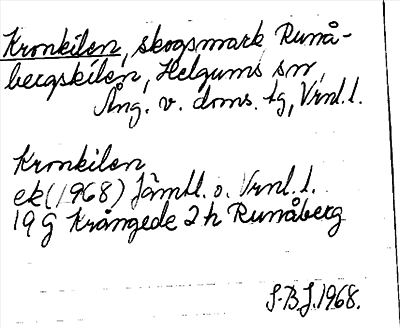 Kronkilen, skogsmark Runå-
bergskilen, Helgums sn,
Ång. v. doms. tg, Vrnl. l.
Kronkilen
ek (1968) Jämtl. o. Vrnl. l.
19 g Krångede 2 h Runåberg
S.B.J. 1968.